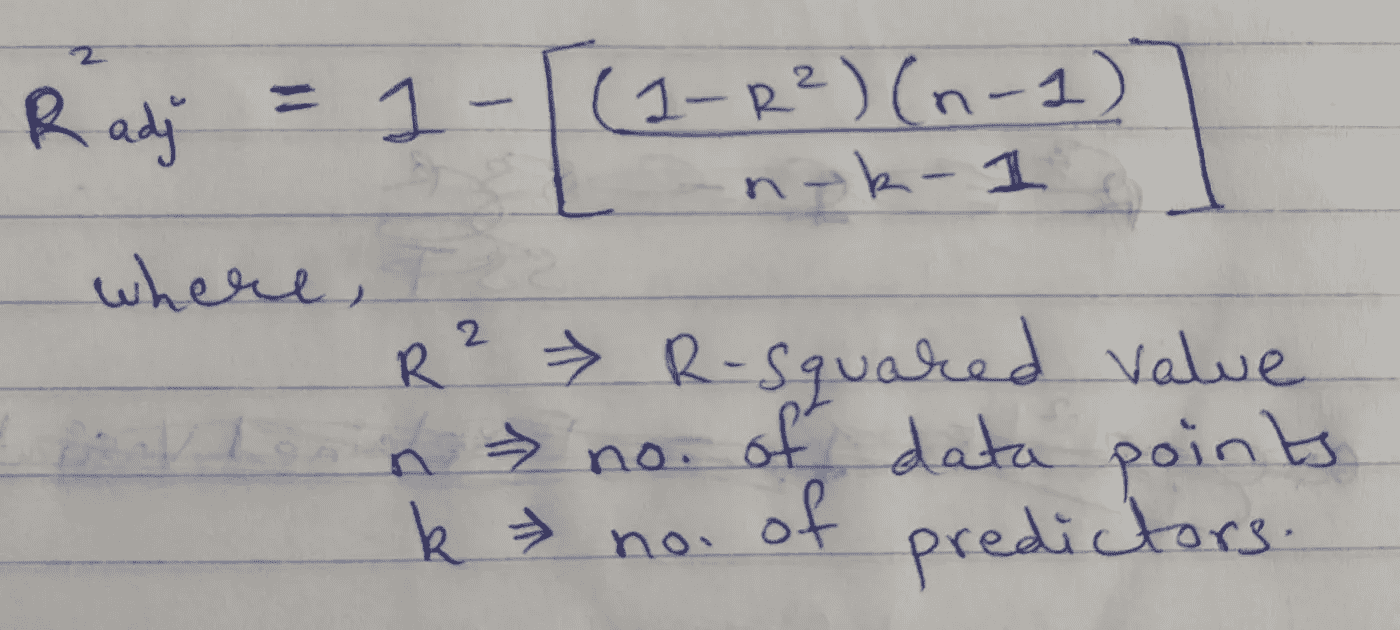 R²adj = 1 - [(1-R²)(n-1) / n-k-1]
where,
R² ⇒ R-squared value
n ⇒ no. of data points
k ⇒ no. of predictors.